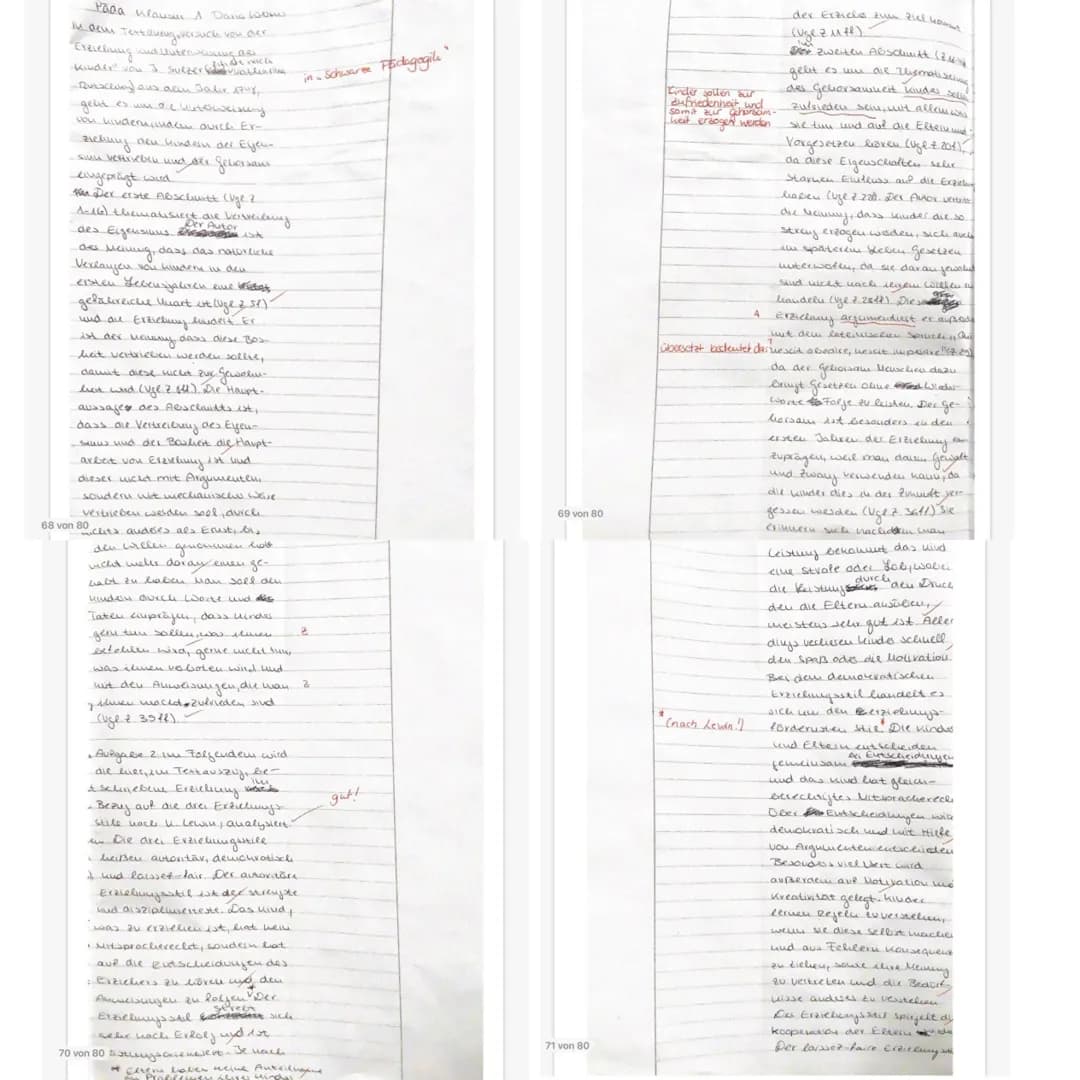 Päda Klausur 1
In dem Textauszug "Versuch von der
Erziehung und Unterweisung der
Kinder" von J. Sulzer
in "Schwarze Pädagogik"
aus dem Jahr
geht es um die Unterweisung
von Kindern, indem durch Er-
ziehung den Kindern der Eigen-
sinn vertrieben und der Gehorsam
eingeprägt wird
Der erste Abschnitt (Vgl. Z
1-16) thematisiert die Vertreibung
des Eigensinns Der Autor ist
der Meinung, dass das natürliche
Verlangen von Kindern in den
ersten Lebensjahren eine
gefährliche Unart ist (Vgl. Z 5f)
und die Erziehung hindert. Er
ist der Meinung dass diese Bos-
heit vertrieben werden sollte,
damit diese nicht zur Gewohn-
heit wird (Vgl. Z 11f). Die Haupt-
aussage des Abschnitts ist,
dass die Vertreibung des Eigen-
sinns und der Bosheit die Haupt-
arbeit von Erziehung ist und
dieser nicht mit Argumenten
sondern mit mechanische Weise
vertrieben werden soll, durch
68 von 80
nichts anderes als Ernst, bis
der Erzieher zum Ziel kommt
(Vgl. Z 11ff)
im zweiten Abschnitt
geht es um die Thematisierung
des Gehorsamkeit Kinder sollen
Kinder sollen zur
Zufriedenheit und
somit zur Gehorsam-
keit erzogen werden
zufrieden sein, mit allem was
sie tun und auf die Eltern und
Vorgesetzen hören (Vgl. Z 20f),
da diese Eigenschaften sehr
starken Einfluss auf die Erziehung
haben (Vgl. Z 22f). Der Autor vertritt
die Meinung, dass Kinder die so
streng erzogen werden, sich auch
im späterem Leben Gesetzen
unterwerfen, da sie daran gewohnt
sind nicht nach ihrem Willen zu
handeln (Vgl. Z 28ff). Diese
A
Erziehung argumentiert er außerdem
mit dem lateinischen Spruch
übersetzt bedeutet das
da der Gehorsam Menschen dazu
bringt Gesetzen ohne Wieder-
worte Folge zu leisten. Der Ge-
horsam ist besonders in den
ersten Jahren der Erziehung ein-
zuprägen, weil man dann Gewalt
und Zwang verwenden kann, da
die Kinder dies in der Zukunft ver-
gessen werden (Vgl. Z 36ff) Sie
69 von 80
erinnern sich nachdem man
den Willen genommen hat
nicht mehr daran einen ge-
habt zu haben. Man soll den
Kindern durch Worte und
Taten einprägen, dass Kinder
gern tun sollen, was ihnen
befohlen wird, gerne nicht tun,
was ihnen verboten wird und
mit den Anweisungen, die man
ihnen macht zufrieden sind
(Vgl. Z 39ff)
Aufgabe 2 im Folgendem wird
die hier, im Textauszug, be-
schriebene Erziehung im
Bezug auf die drei Erziehungs-
stile nach K. Lewin, analysiert.
gut!
Die drei Erziehungsstile
heißen autoritär, demokratisch
und laissez-fair. Der autoritäre
Erziehungsstil ist der strengste
und disziplinierteste. Das Kind,
was zu erziehen ist, hat kein
Mitspracherecht, sondern hat
auf die Entscheidungen des
Erziehers zu hören und den
Anweisungen zu folgen. Der
Erziehungsstil strebt sich
sehr nach Erfolg und ist
70 von 80
leistungsorientiert. Je nach
* Eltern haben keine Anteilnahme
an Problemen ihres Kindes
Leistung bekommt das Kind
eine Strafe oder Lob, wobei
die Leistung durch den Druck
den die Eltern ausüben,
meistens sehr gut ist. Aller-
dings verlieren Kinder schnell
den Spaß oder die Motivation.
Bei dem demokratischen
Erziehungsstil handelt es
sich um den erziehungs-
förderndsten Stil*. Die Kinder
* (nach Lewin!)
und Eltern entscheiden
gemeinsam bei Entscheidungen
und das Kind hat gleich-
berechtigtes Mitspracherecht
Über Entscheidungen wird
demokratisch und mit Hilfe
von Argumenten entschieden
Besonders viel Wert wird
außerdem auf Motivation und
Kreativität gelegt. Kinder
lernen Regeln zu verstehen,
wenn sie diese selbst machen
und aus Fehlern Konsequenz
zu ziehen, sowie ihre Meinung
zu vertreten und die Bedürf-
nisse anderer zu verstehen
Der Erziehungsstil spiegelt die
Kooperation der Eltern
71 von 80
Der laissez-faire Erziehungsstil